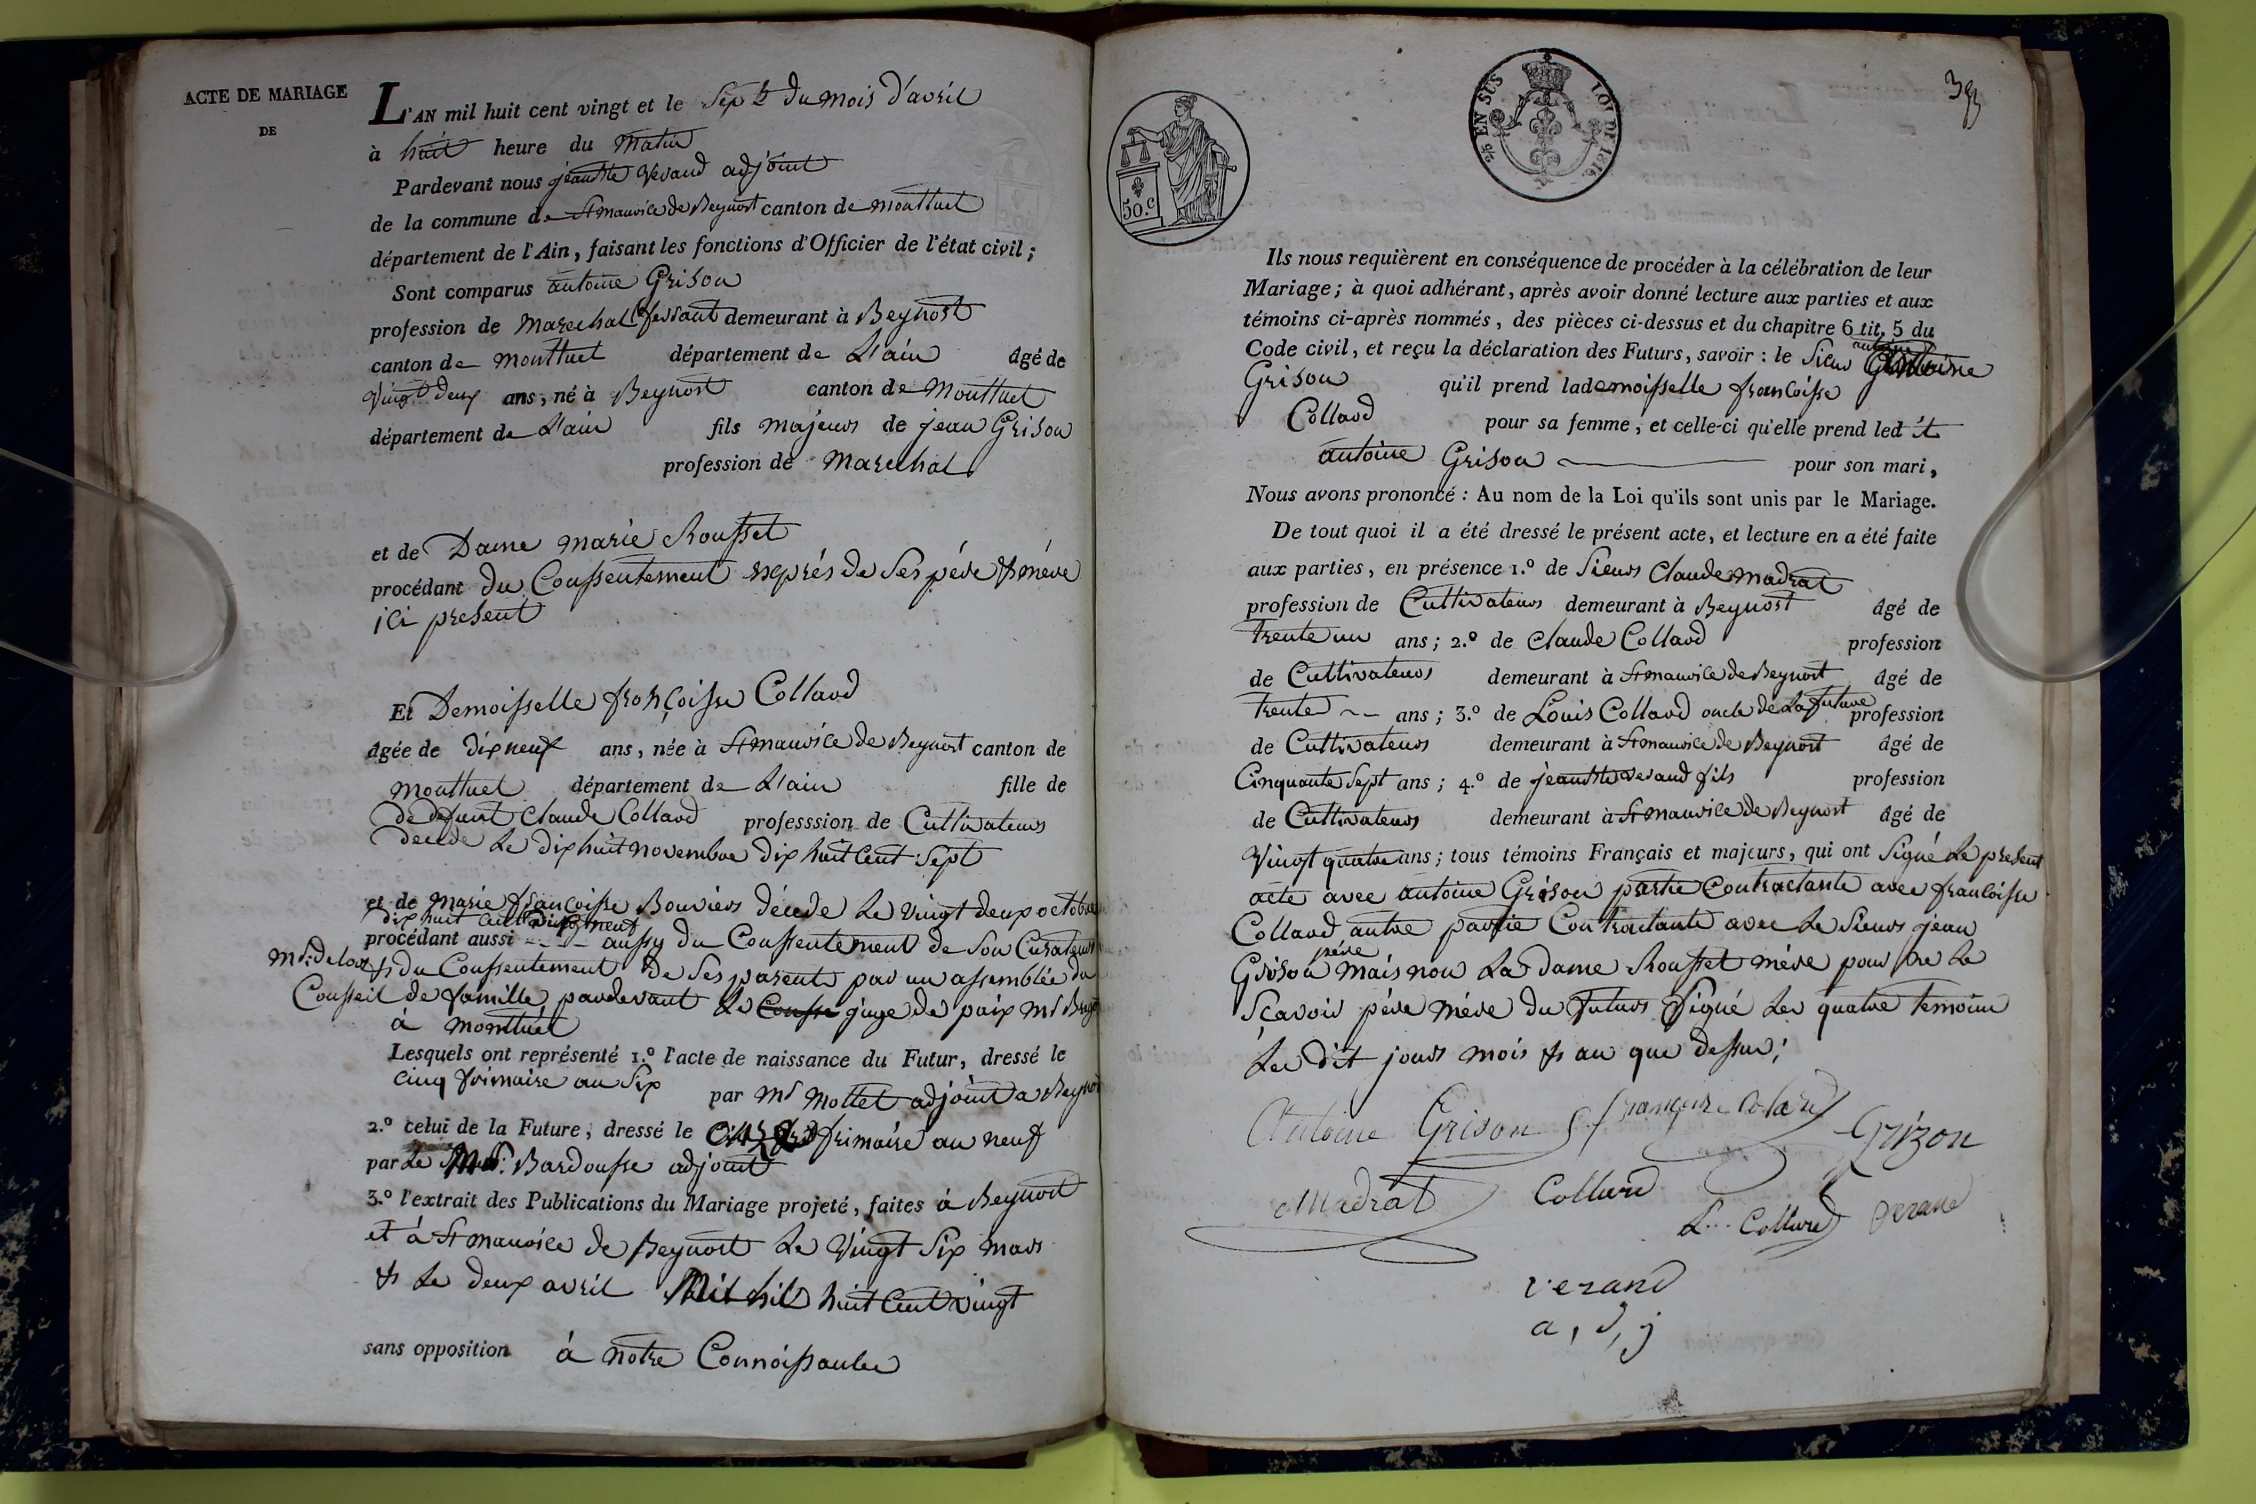 ACTE DE MARIAGE
DE
L'AN mil huit cent vingt et le Sept du mois d'avril
à huit heure du matin
Pardevant nous jean Bte Verand adjoint
de la commune de St maurice de Beynost canton de montluel
département de l'Ain, faisant les fonctions d'Officier de l'état civil;
Sont comparus antoine Grison
profession de Marechal ferrant demeurant à Beynost
canton de montluel département de L'ain âgé de
Vingt deux ans, né à Beynost canton de Montluel
département de L'ain fils majeur de jean Grison
profession de Marechal
et de Dame marie Rousset
procédant du Consentement exprés de Ses pére & mére
ici present
Et Demoisselle francoisse Collard
âgée de dix neuf ans, née à St maurice de Beynost canton de
montluel département de L'ain fille de
de defunt Claude Collard professsion de Cultivateur
decede Le dix huit novembre dix huit Cent Sept
et de marie francoisse Bouvier décede Le vingt deux octobre
dix huit Cent dix neuf
procédant aussi aussy du Consentement de Son Curateur
& du Consentement de Ses parent par un assemblée du
Conseil de famille pardevant Le juge de paix mr
à montluel
Lesquels ont représenté 1.º l'acte de naissance du Futur, dressé le
cinq frimaire an Six par mr Mollet adjoint a Beynost
2.º celui de la Future, dressé le frimaire an neuf
par Le Mr. Bardousse adjoint
3.º l'extrait des Publications du Mariage projeté, faites à Beynost
et à St maurice de Beynost Le Vingt Six mars
& Le deux avril Mil huit Cent vingt
sans opposition à notre Connoissance
5/5 EN SUS
LOI DE 1816.
50.c
Ils nous requièrent en conséquence de procéder à la célébration de leur
Mariage; à quoi adhérant, après avoir donné lecture aux parties et aux
témoins ci-après nommés, des pièces ci-dessus et du chapitre 6 tit. 5 du
Code civil, et reçu la déclaration des Futurs, savoir: le Sieur antoine
Grison qu'il prend lademoisselle francoisse
Collard pour sa femme, et celle-ci qu'elle prend led it
antoine Grison pour son mari,
Nous avons prononcé: Au nom de la Loi qu'ils sont unis par le Mariage.
De tout quoi il a été dressé le présent acte, et lecture en a été faite
aux parties, en présence 1.º de Sieur Claude madrat
profession de Cultivateur demeurant à Beynost âgé de
trente un ans; 2.º de Claude Collard profession
de Cultivateur demeurant à St maurice de Beynost âgé de
trente ans; 3.º de Louis Collard oncle de La future profession
de Cultivateur demeurant à St maurice de Beynost âgé de
Cinquante Sept ans; 4.º de jean Bte Verand fils profession
de Cultivateur demeurant à St maurice de Beynost âgé de
Vingt quatre ans; tous témoins Français et majeurs, qui ont Signé Le present
acte avec antoine Grison partie Contractante avec francoisse
Collard autre partie Contractante avec Le Sieur jean
Grison pére mais non La dame Rousset mére pour ne Le
Sçavoir pére mére du futur Signé Les quatre temoins
Les dit jours mois & an que dessus;
Antoine Grison françoise Colard Grizon
Madrat Collard
L. Collard Verand
verand
a, d, j